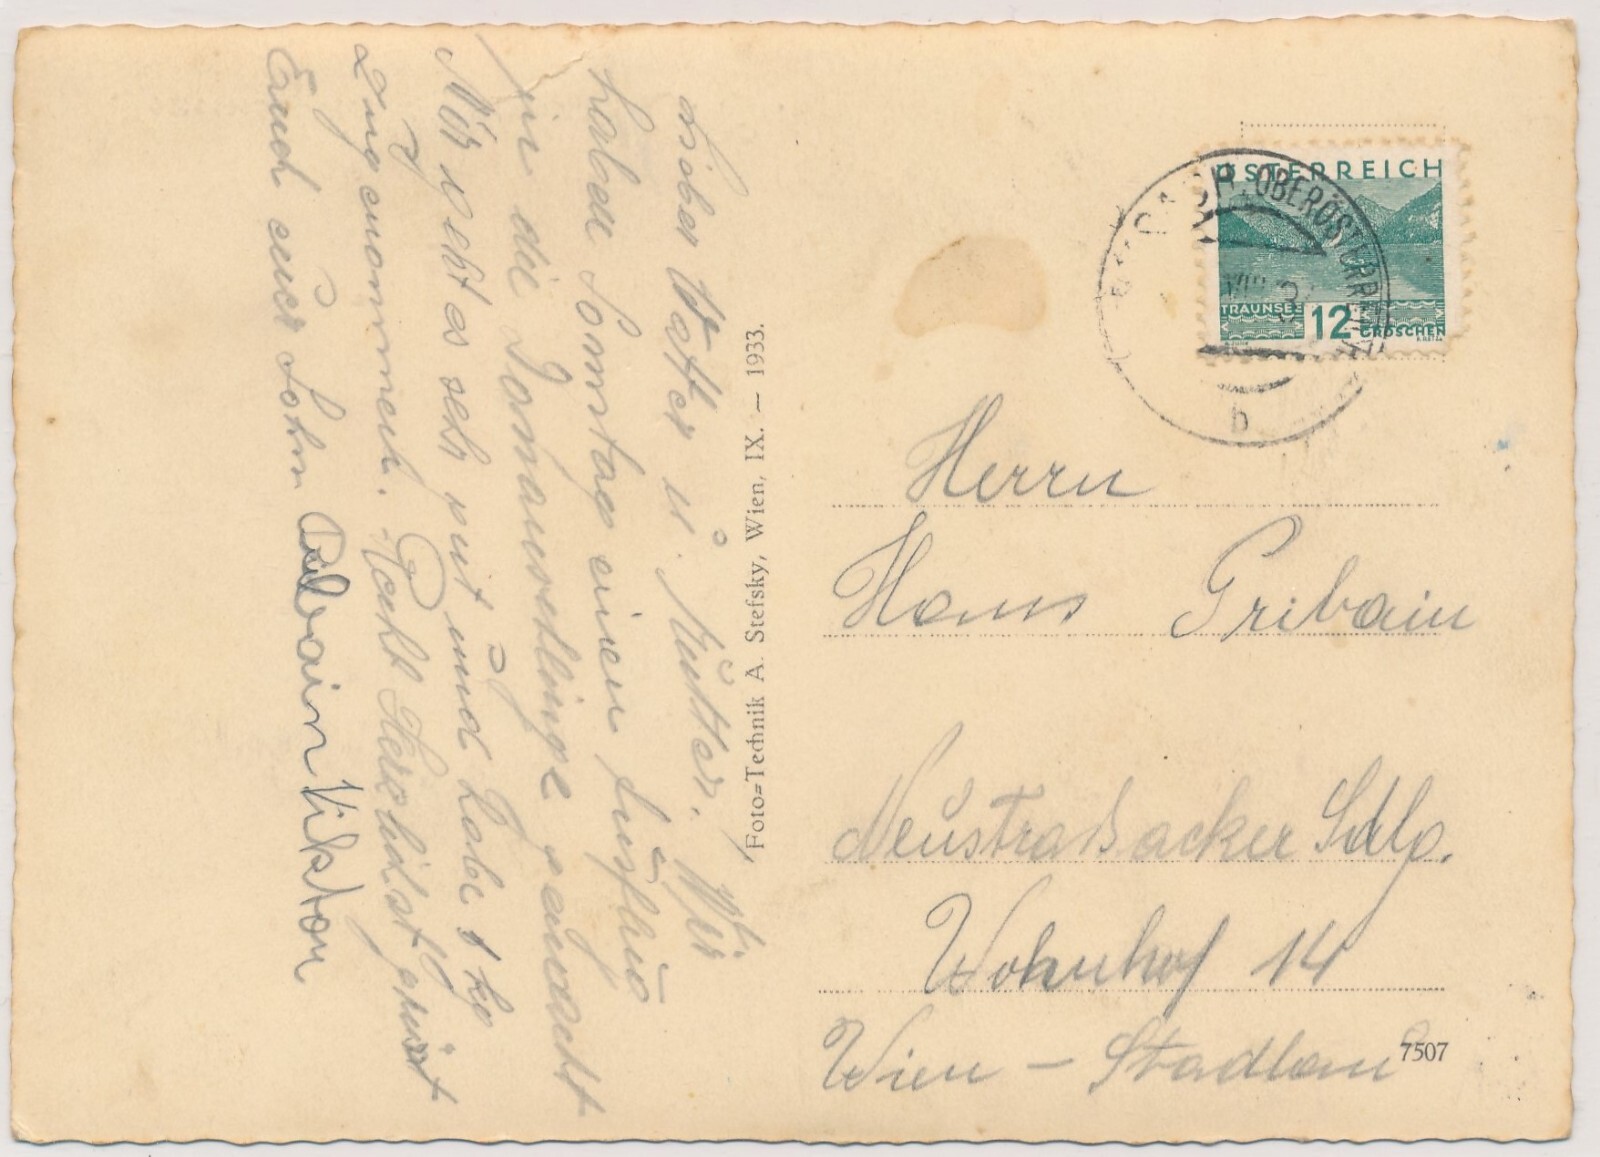 Lieber Vatter u. Mutter. Wir
haben Sonntag einen Ausflug
in die gemacht
Mir geht es sehr gut und habe 1 kg
Zugenommen. Recht Herzlichst grüßt
Euch euer Sohn Viktor
Foto=Technik A. Stefsky, Wien, IX. — 1933.
ÖSTERREICH
TRAUNSEE 12 GROSCHEN
OBERÖSTERREICH
b
Herrn
Hans Gribain
Neustraßäcker Sdlg.
Wohnhof 14
Wien – Stadlau
7507